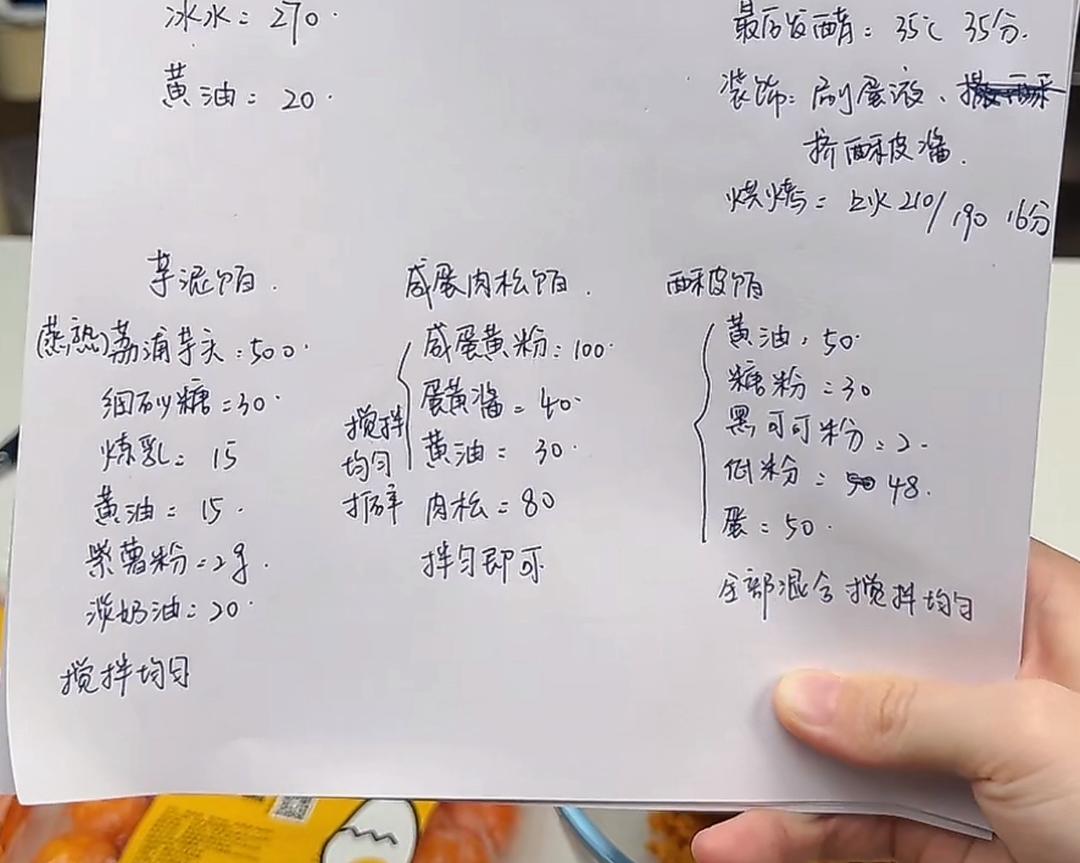 冰水：270.
黄油：20.
最后发酵：35℃ 35分.
装饰：刷蛋液、
挤酥皮酱.
烘烤：上火210/190 16分
芋泥馅.
(蒸熟)荔浦芋头：500.
细砂糖：30.
炼乳：15
黄油：15.
紫薯粉：2g.
淡奶油：20.
搅拌均匀
咸蛋肉松馅.
咸蛋黄粉：100.
蛋黄酱：40.
黄油：30.
搅拌
均匀
肉松：80
拌匀即可
酥皮馅
黄油：50.
糖粉：30
黑可可粉：2.
低粉：48.
蛋：50.
全部混合搅拌均匀